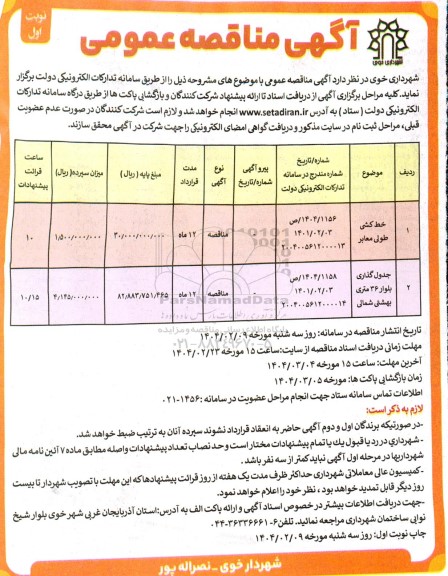 نوبت اول
شهرداری خوی
آگهی مناقصه عمومی
شهرداری خوی در نظر دارد آگهی مناقصه عمومی با موضوع های مشروحه ذیل را از طریق سامانه تدارکات الکترونیکی دولت برگزار
نماید. کلیه مراحل برگزاری آگهی از دریافت اسناد تا ارائه پیشنهاد شرکت کنندگان و بازگشایی پاکت ها از طریق درگاه سامانه تدارکات
الکترونیکی دولت ( ستاد ) به آدرس www.setadiran.ir انجام خواهد شد و لازم است شرکت کنندگان در صورت عدم عضویت
قبلی، مراحل ثبت نام در سایت مذکور و دریافت گواهی امضای الکترونیکی را جهت شرکت در آگهی محقق سازند.
ردیف | موضوع | شماره/تاریخ شماره مندرج در سامانه تدارکات الکترونیکی دولت | پیرو آگهی شماره/تاریخ | نوع آگهی | مدت قرارداد | مبلغ پایه ( ریال) | میزان سپرده( ریال) | ساعت قرائت پیشنهادات
۱ | خط کشی طولی معابر | ۱۴۰۴/۱۱۵۶/ص ۱۴۰۱/۰۲/۰۳ ۲۰۰۴۰۰۵۶۱۲۰۰۰۰۱۳ | - | مناقصه | ۱۲ ماه | ۳۰/۰۰۰/۰۰۰/۰۰۰ | ۱/۵۰۰/۰۰۰/۰۰۰ | ۱۰
۲ | جدول گذاری بلوار ۳۶ متری بهشتی شمالی | ۱۴۰۴/۱۱۵۸/ص ۱۴۰۱/۰۲/۰۳ ۲۰۰۴۰۰۵۶۱۲۰۰۰۰۱۴ | - | مناقصه | ۱۲ ماه | ۸۲/۸۸۳/۷۵۱/۴۶۵ | ۴/۱۴۵/۰۰۰/۰۰۰ | ۱۰/۱۵
ParsNamadData
تاریخ انتشار مناقصه در سامانه: روز سه شنبه مورخه ۱۴۰۴/۰۲/۰۹
مهلت زمانی دریافت اسناد مناقصه از سایت:ساعت ۱۵ مورخه ۱۴۰۴/۰۲/۲۳
آخرین مهلت: ساعت ۱۵ مورخه ۱۴۰۴/۰۳/۰۴
زمان بازگشایی پاکت ها: مورخه ۱۴۰۴/۰۳/۰۵
اطلاعات تماس سامانه ستاد جهت انجام مراحل عضویت در سامانه :۱۴۵۶-۰۲۱
لازم به ذکر است:
-در صورتیکه برندگان اول و دوم آگهی حاضر به انعقاد قرارداد نشوند سپرده آنان به ترتیب ضبط خواهد شد.
-شهرداری در رد یا قبول یك یا تمام پیشنهادات مختار است و حد نصاب تعداد پیشنهادات واصله مطابق ماده ۷ آئین نامه مالی
شهرداریها در مرحله اول آگهی نباید کمتر از سه نفر باشد .
-کمیسیون عالی معاملاتی شهرداری حداکثر ظرف مدت یک هفته از روز قرائت پیشنهادها که این مهلت با تصویب شهردار تا بیست
روز دیگر قابل تمدید خواهد بود ، نظر خود را اعلام خواهد نمود.
-جهت دریافت اطلاعات بیشتر در خصوص اسناد آگهی و ارائه پاکت الف به آدرس:استان آذربایجان غربی شهر خوی بلوار شیخ
نوایی ساختمان شهرداری مراجعه نمائید. تلفن۶-۳۶۳۳۶۶۶۱-۰۴۴
چاپ نوبت اول: روز سه شنبه مورخه ۱۴۰۴/۰۲/۰۹
شهردار خوی _ نصراله پور